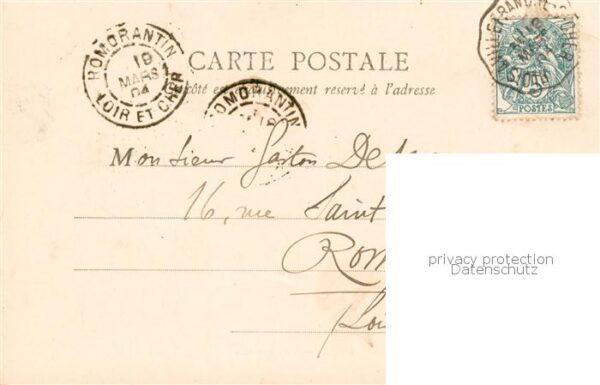 ROMORANTIN
19
MARS
04
LOIR ET CHER
CARTE POSTALE
côté est exclusivement réservé à l'adresse
ROMORANTIN
BLOIS
POSTES
Monsieur Gaston De
16, rue Saint
Rom
Loi
privacy protection
Datenschutz